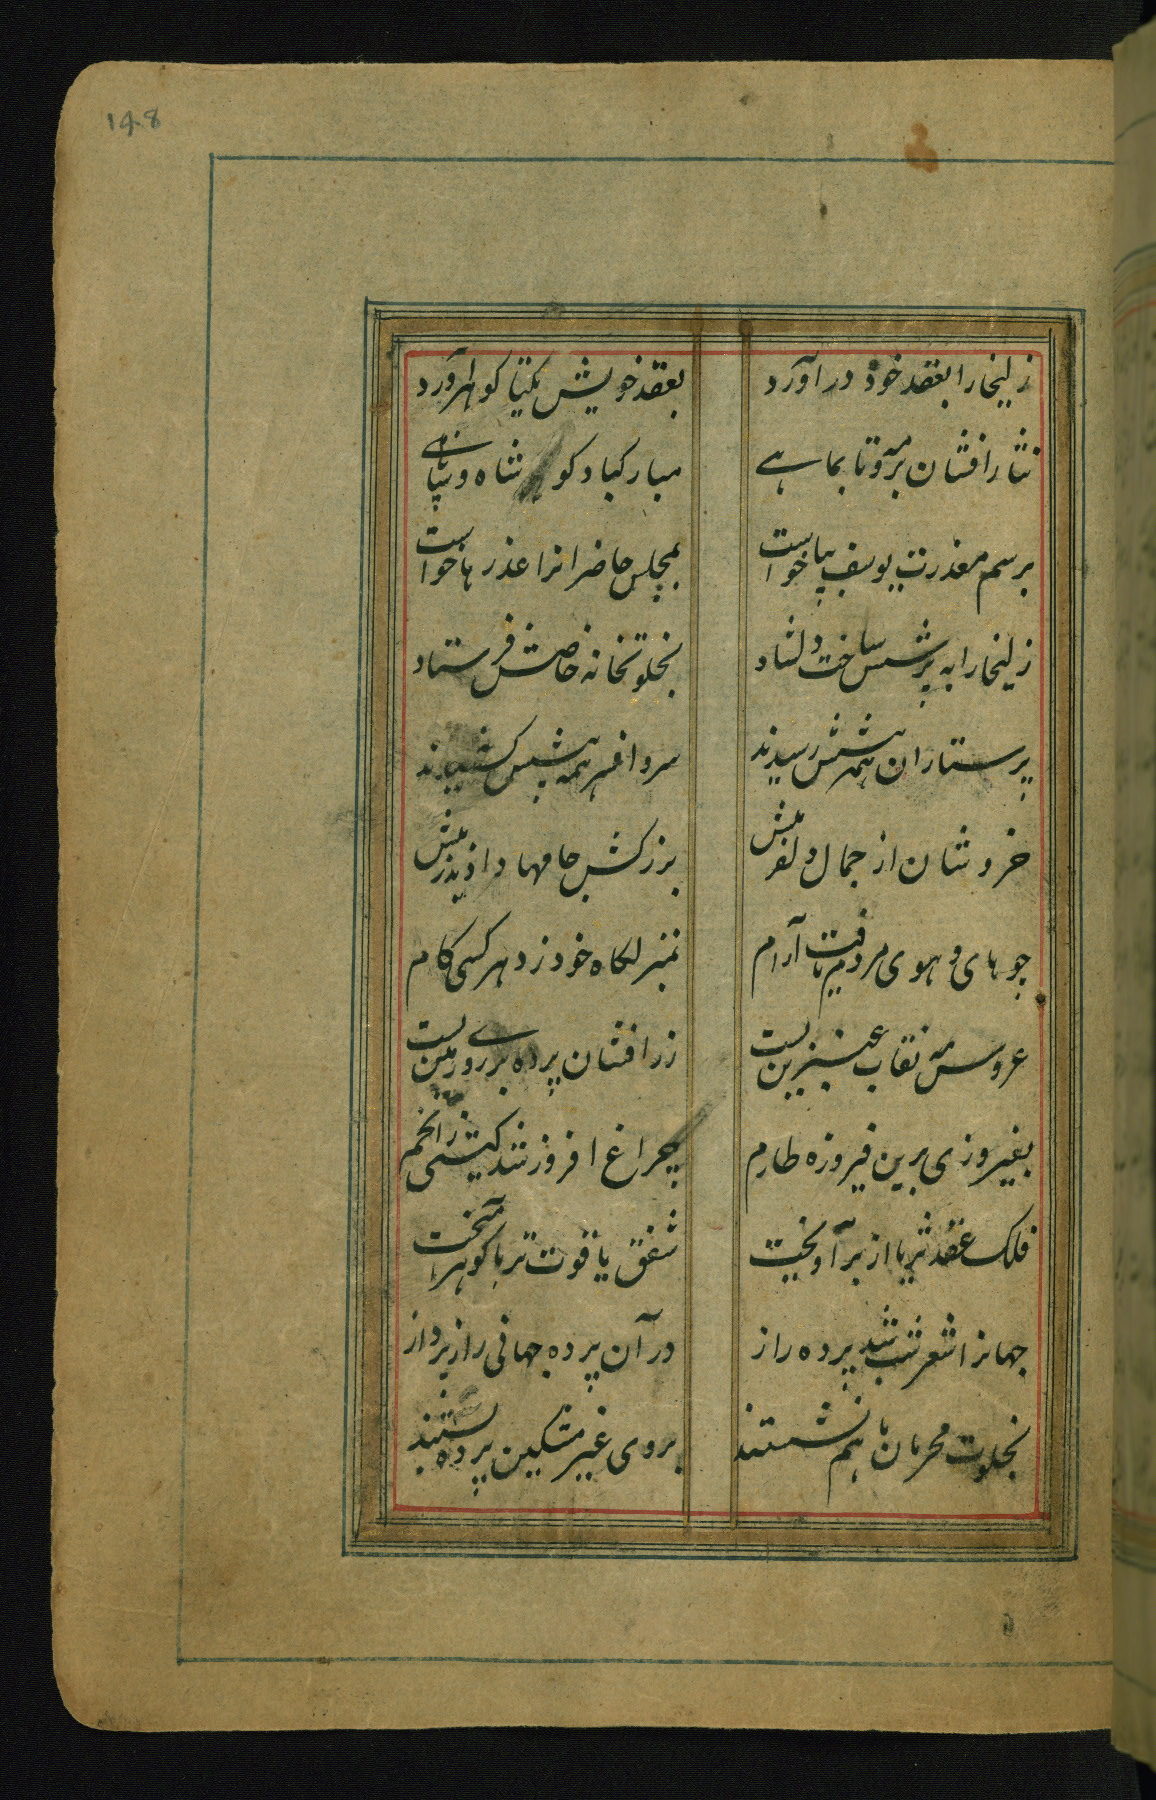 148
زلیخا را بعقد خود درآورد بعقد خویش یکتا گوهر آورد
نثار افشان برو مه تا بماهے مبارکباد کو شاه و سپاهے
برسم معذرت یوسف بپا خواست بمجلس حاضرانرا عذرها خواست
زلیخا را به پرسش ساخت دلشاد بخلوتخانه خاصش فرستاد
پرستاران همه پیشش رسیدند سر و افسر همه پیشش کشیدند
خروشان از جمال دلفریبش بزرکش جامها دادند زیبش
چو های و هوی مردم یافت آرام بمنزلکاه خود زد هر کسی کام
عروس مه نقاب عنبرین بست زرافشان پرده بر روے زمین بست
بفیروزی برین فیروزه طارم چراغ افروز شد کیتی ز انجم
فلک عقد ثریا از بر آویخت شفق یاقوت تر با کوهر آمیخت
جهانرا شعر شب شد پرده راز در آن پرده جهانی راز پرداز
بخلوت محرمان با هم نشستند بروی غیر مشکین پرده بستند